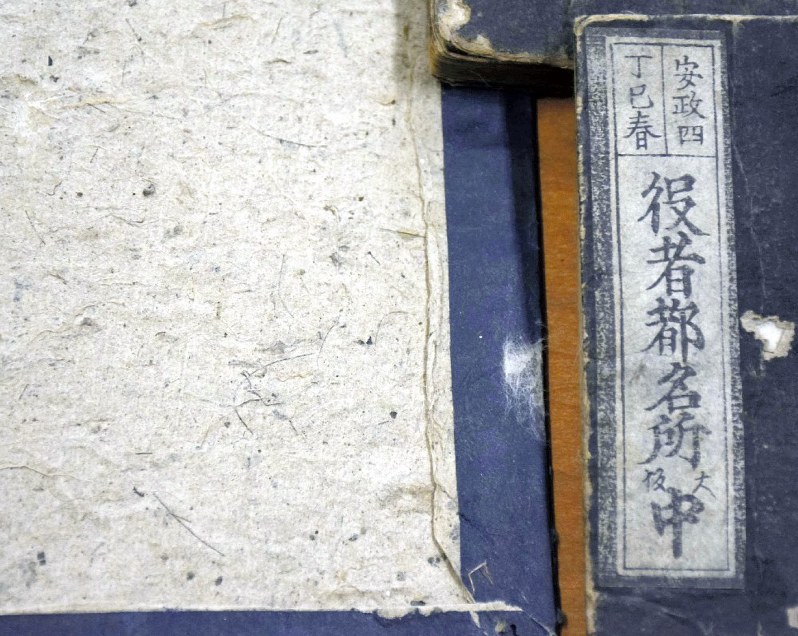 安政四
丁巳春
役者都名所
大坂
中